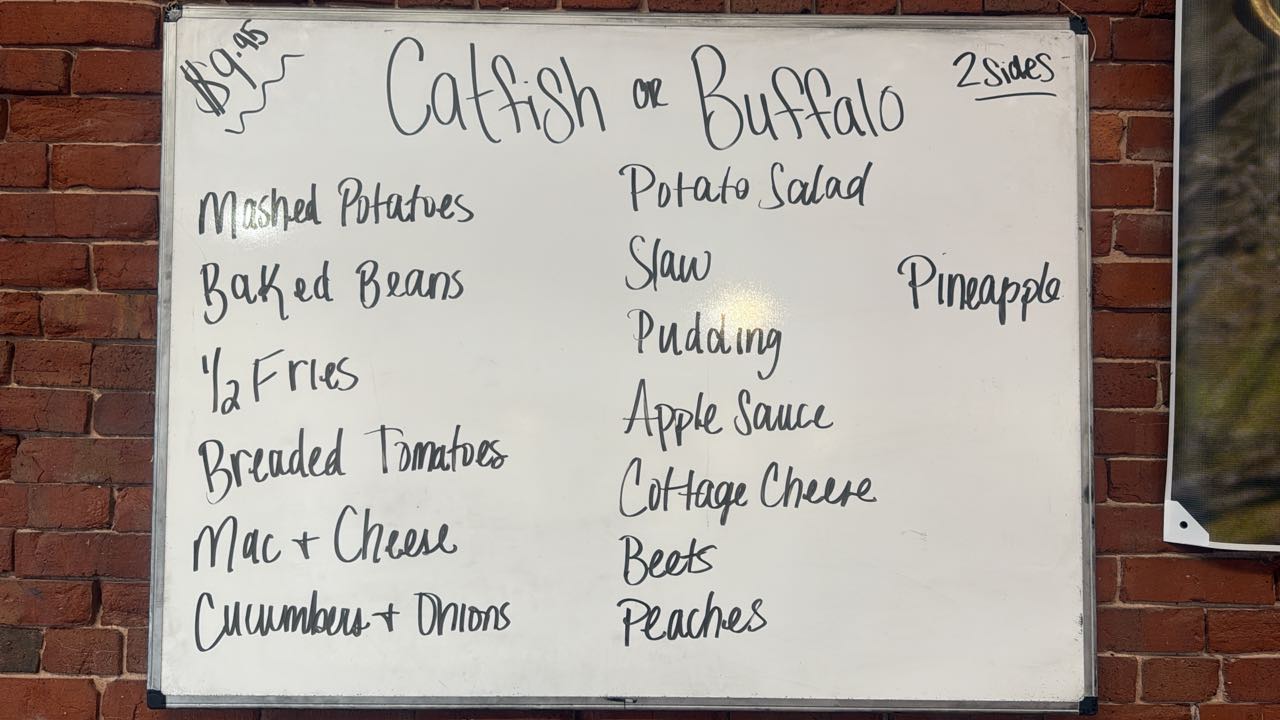 $9.95
Catfish or Buffalo
2 Sides
Mashed Potatoes
Baked Beans
1/2 Fries
Breaded Tomatoes
Mac + Cheese
Cucumbers + Onions
Potato Salad
Slaw
Pudding
Apple Sauce
Cottage Cheese
Beets
Peaches
Pineapple